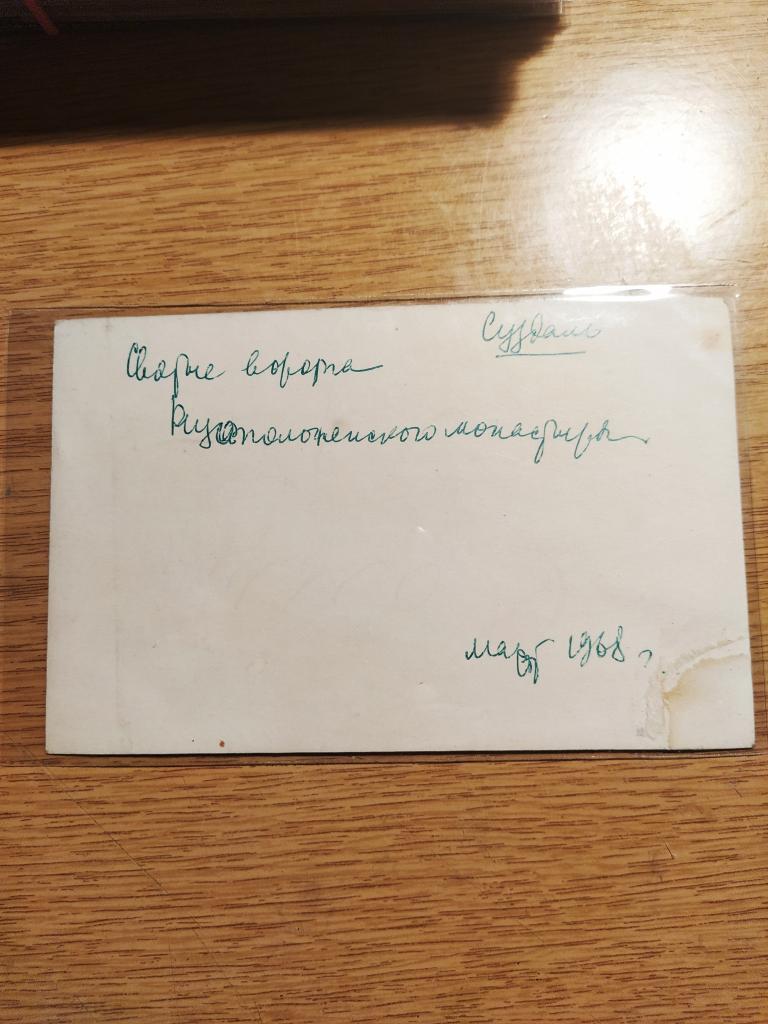 Суздаль
Святые ворота
Ризоположенского монастыря
март 1968 г.